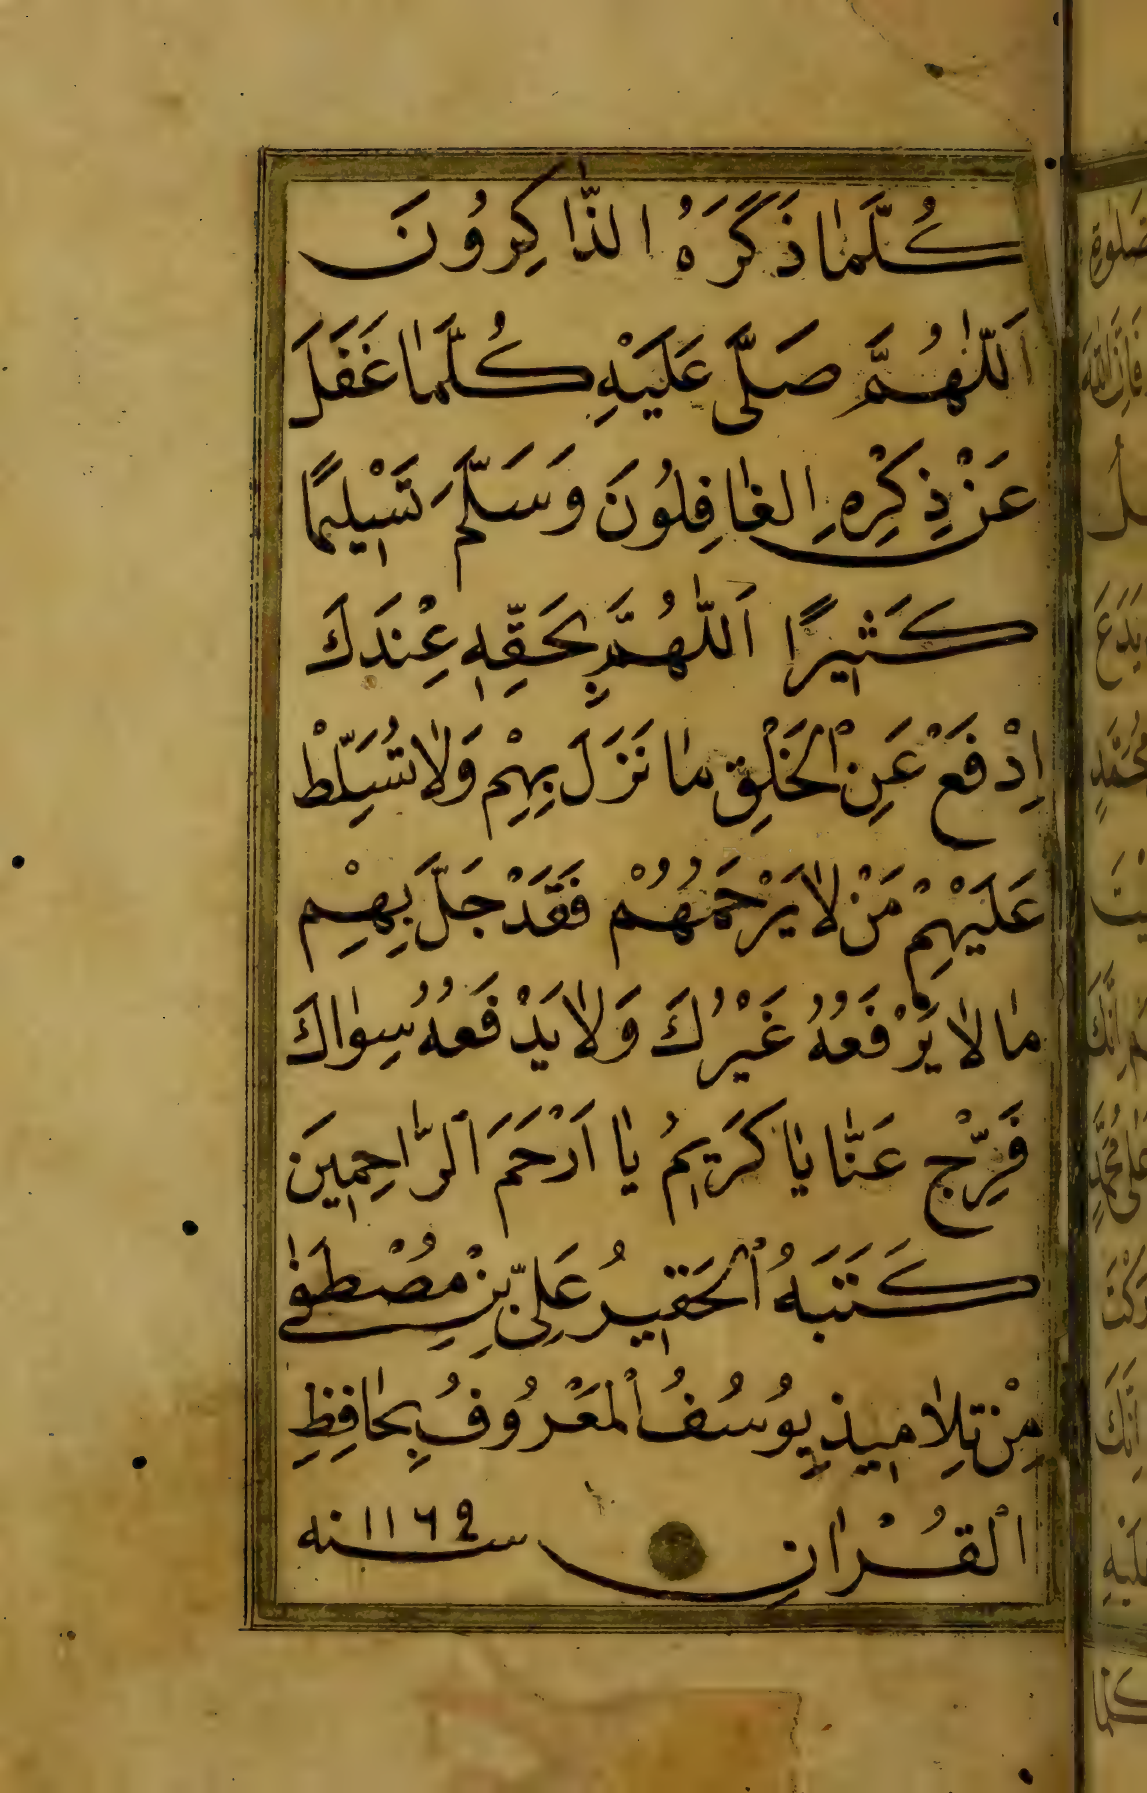 كُلَّمَا ذَكَرَهُ الذَّاكِرُونَ
اَللّٰهُمَّ صَلَّى عَلَيْهِ كُلَّمَا غَفَلَ
عَنْ ذِكْرِهِ الغَافِلُونَ وَسَلَّمَ تَسْلِيمًا
كَثِيرًا اَللّٰهُمَّ بِحَقِّهِ عِنْدَكَ
اِدْفَعْ عَنِ الْخَلْقِ مَا نَزَلَ بِهِمْ وَلَا تُسَلِّطْ
عَلَيْهِمْ مَنْ لَا يَرْحَمُهُمْ فَقَدْ جَلَّ بِهِمْ
مَا لَا يَرْفَعُهُ غَيْرُكَ وَلَا يَدْفَعُهُ سِوَاكَ
فَرِّجْ عَنَّا يَا كَرِيمُ يَا اَرْحَمَ الرَّاحِمِينَ
كَتَبَهُ الْحَقِيرُ عَلِيّ بِنْ مُصْطَفٰى
مِنْ تِلَامِيذِ يُوسُفُ الْمَعْرُوفُ بِحَافِظِ
الْقُرْاٰنِ سنه ١١٦٩